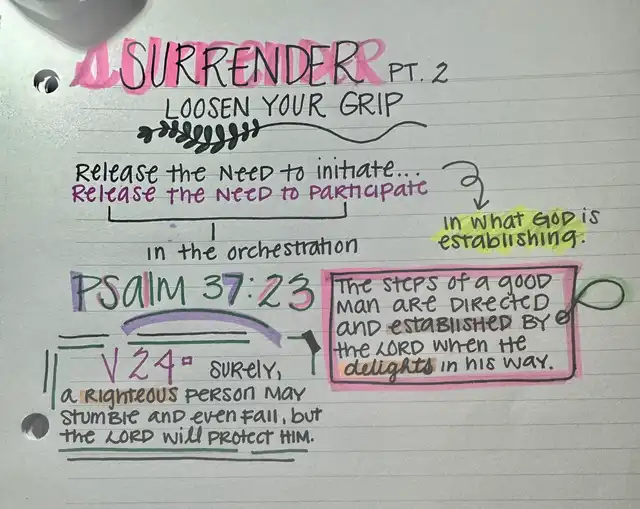 SURRENDER PT. 2
LOOSEN YOUR GRIP
Release the need to initiate...
Release the need to participate
in the orchestration
in what GOD is
establishing.
Psalm 37:23
The steps of a good
man are directed
and established by
the LORD when He
delights in his way.
V 24- Surely,
a righteous person may
stumble and even fall, but
the LORD will protect HIM.